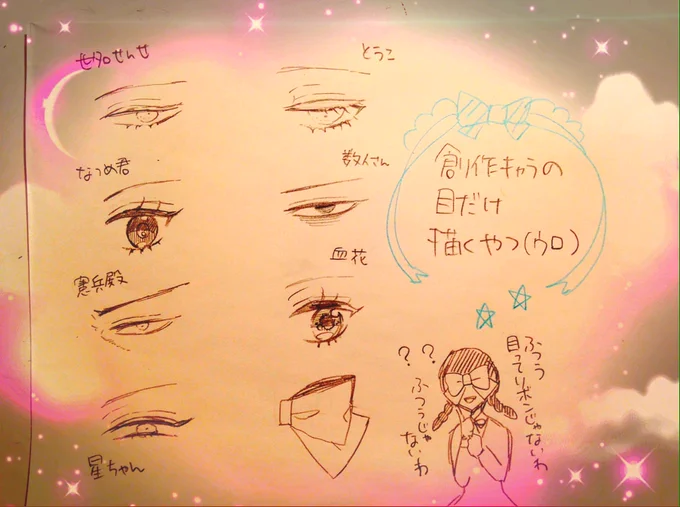 せタロせんせ
とうこ
なつめ君
数人さん
憲兵殿
血花
星ちゃん
創作キャラの
目だけ
描くやつ(ウロ)
ふつう
目ってリボンじゃないわ
??ふつうじゃ
ないわ